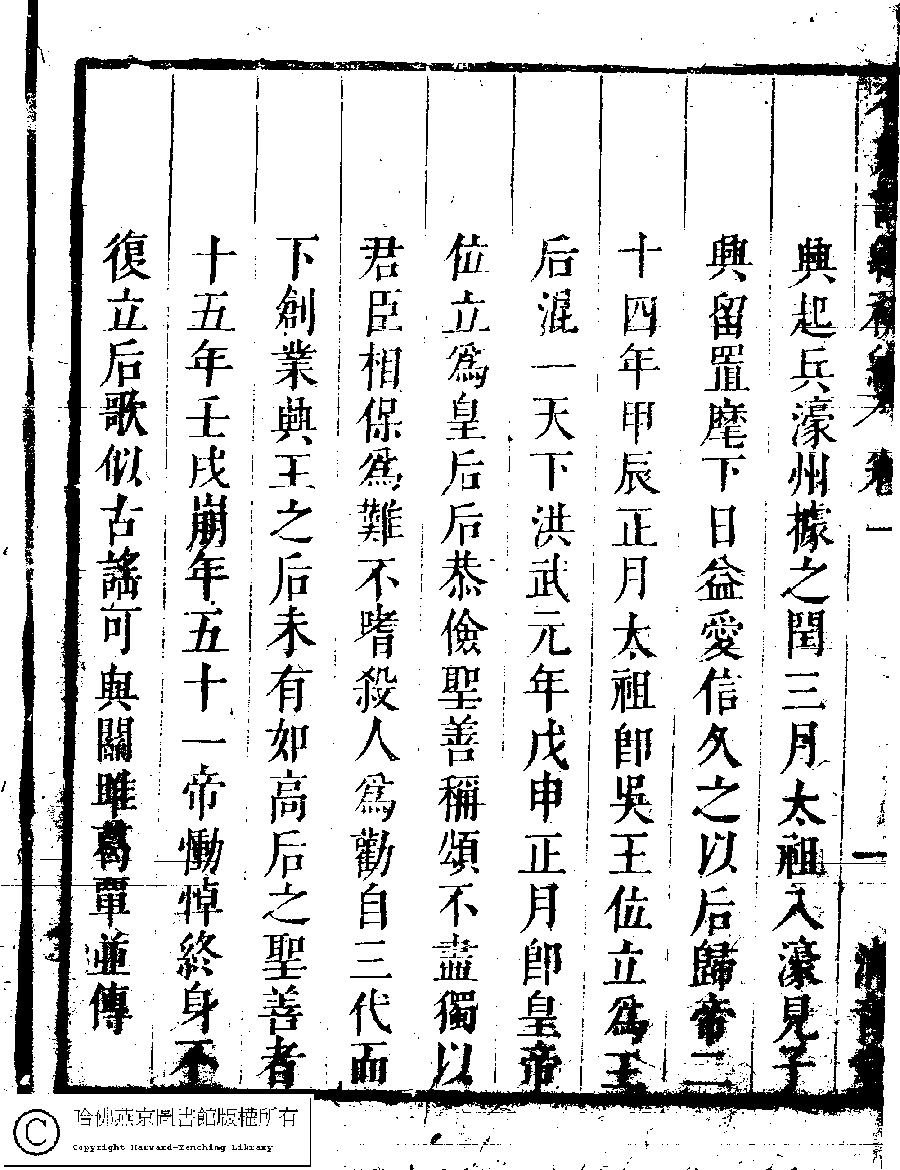 興起兵濠州據之閏三月太祖入濠見子
興留置麾下日益愛信久之以后歸帝二
十四年甲辰正月太祖卽吳王位立爲王
后混一天下洪武元年戊申正月卽皇帝
位立爲皇后后恭儉聖善稱頌不盡獨以
君臣相保爲難不嗜殺人爲勸自三代而
下創業興王之后未有如高后之聖善者
十五年壬戌崩年五十一帝慟悼終身不
復立后歌似古謠可與關雎葛覃並傳
哈佛燕京圖書館版權所有
Copyright Harvard-Yenching Library